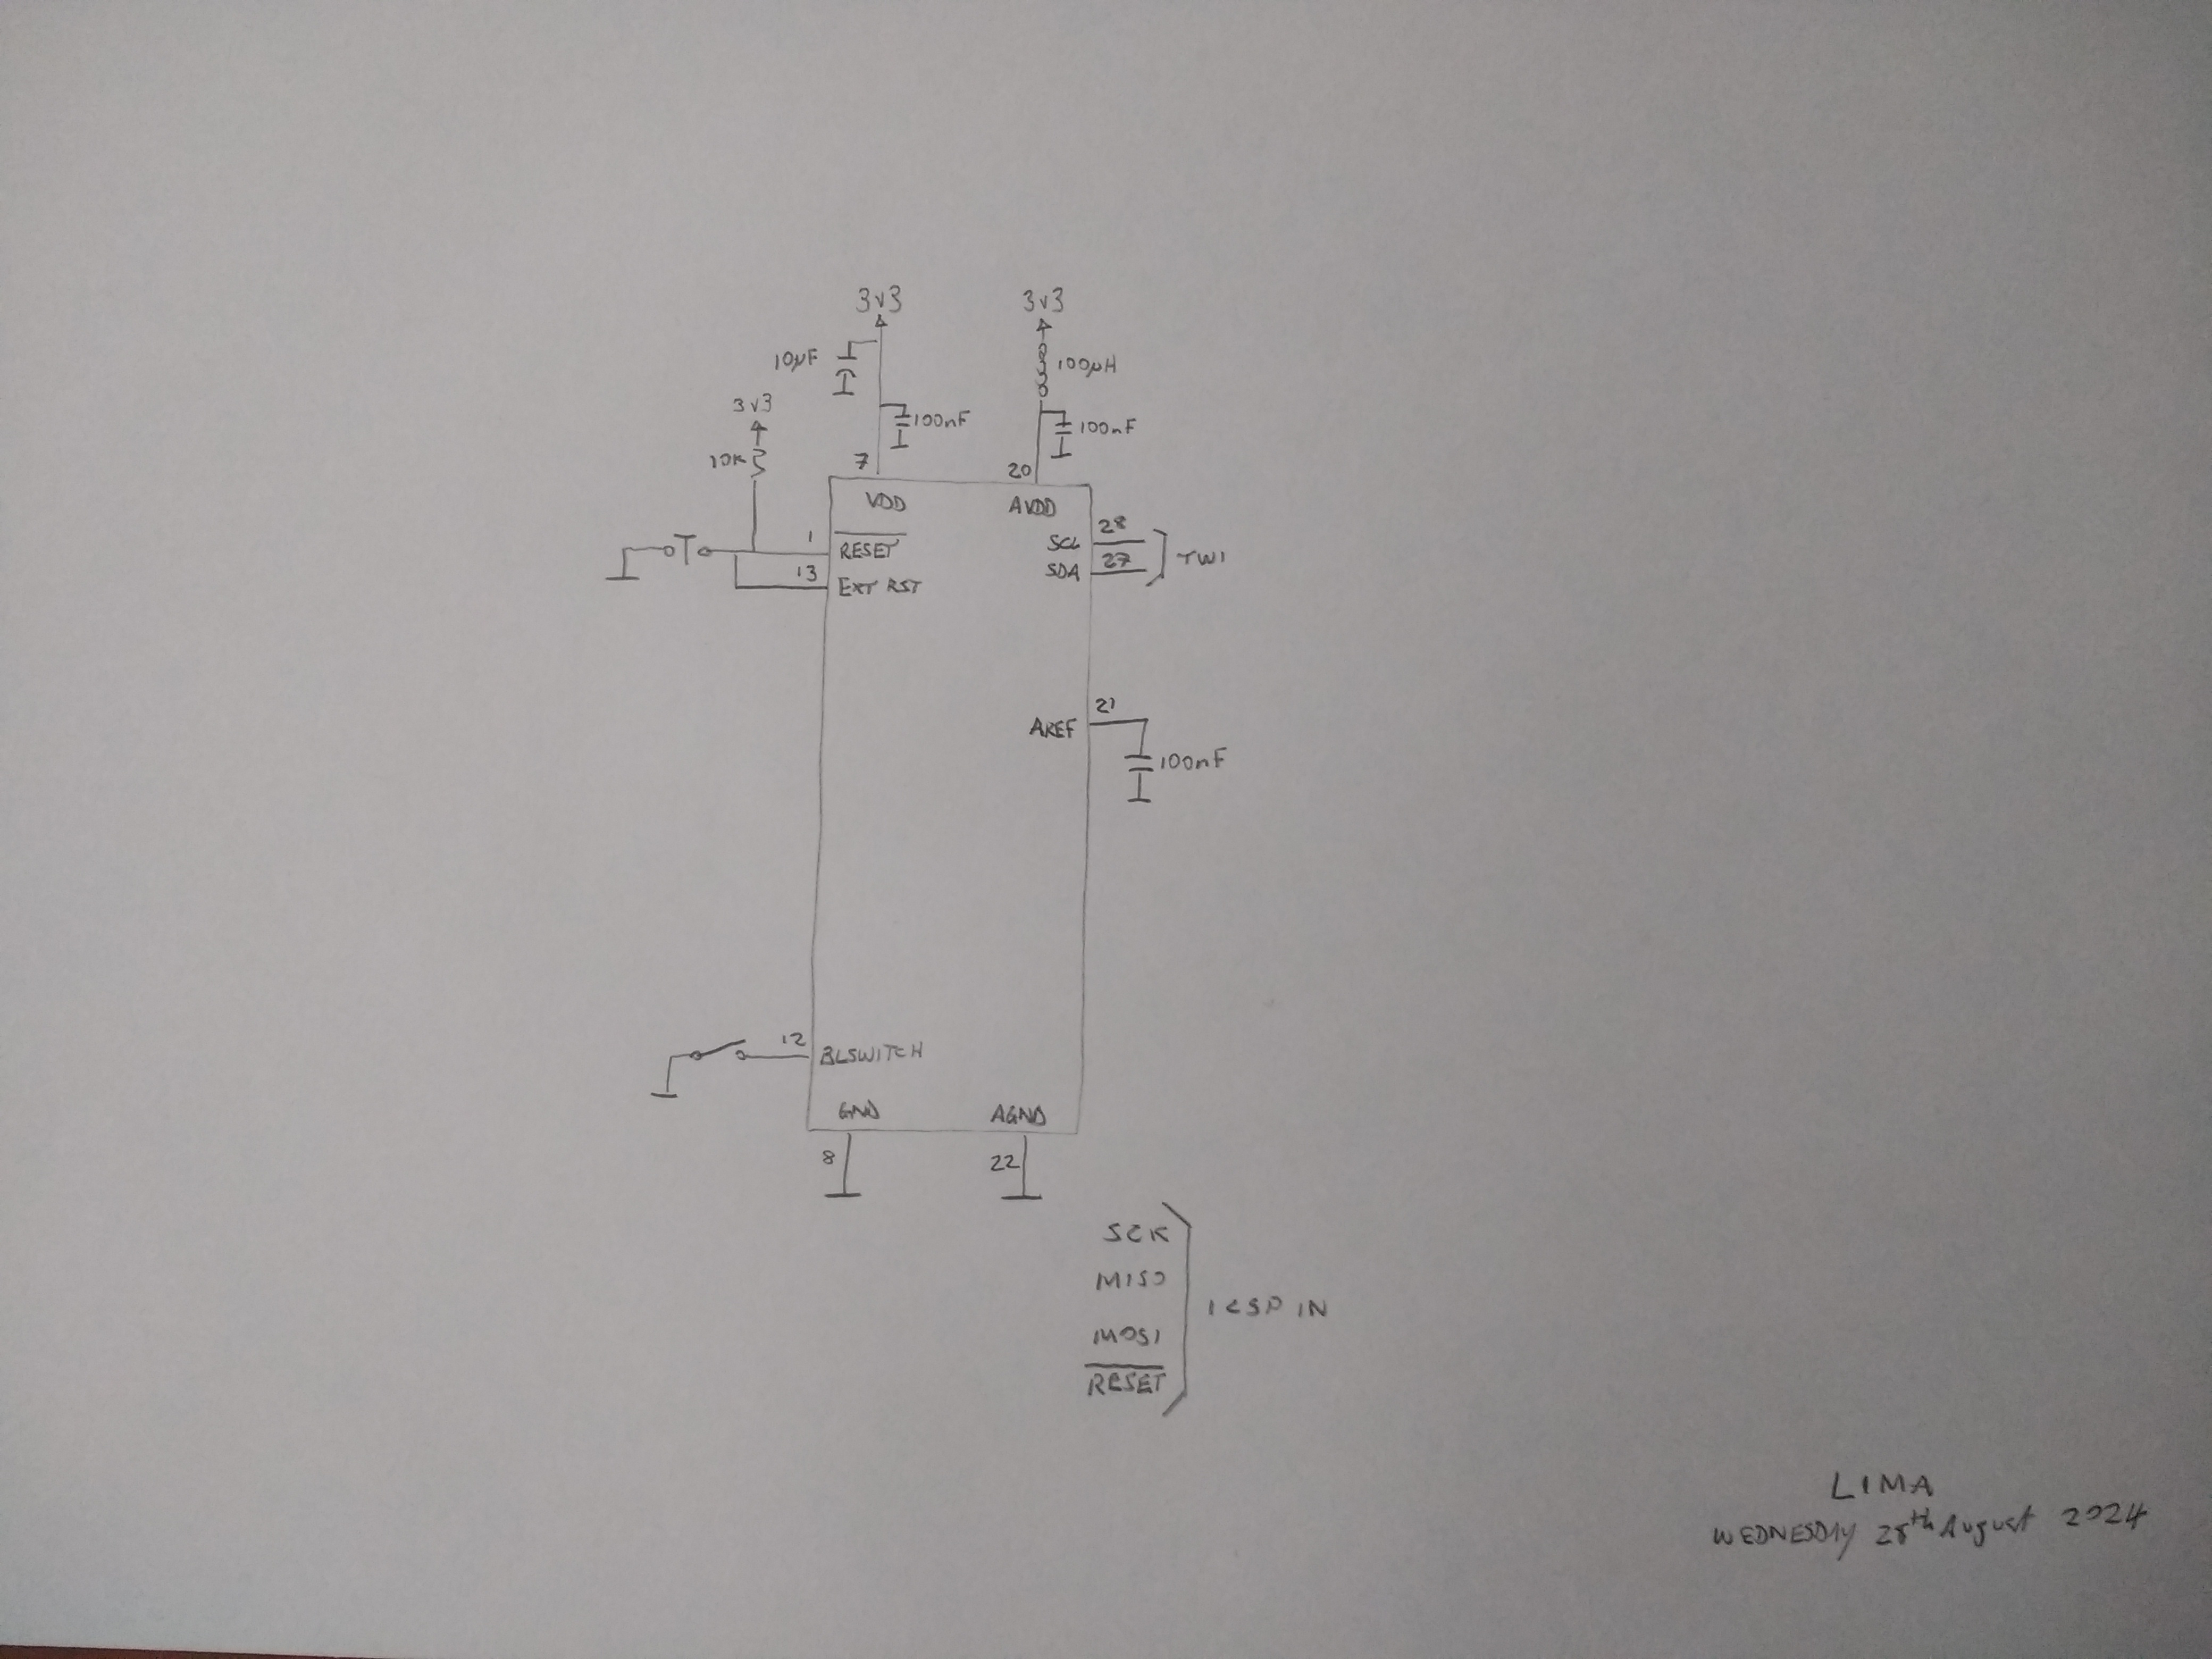 3v3
3v3
10µF
100µH
3v3
100nF
100nF
10K
7
20
VDD
AVDD
1
RESET
28
SCL
27
SDA
TWI
13
EXT RST
21
AREF
100nF
12
BLSWITCH
GND
AGND
8
22
SCK
MISO
MOSI
RESET
ICSP IN
LIMA
WEDNESDAY 28th August 2024